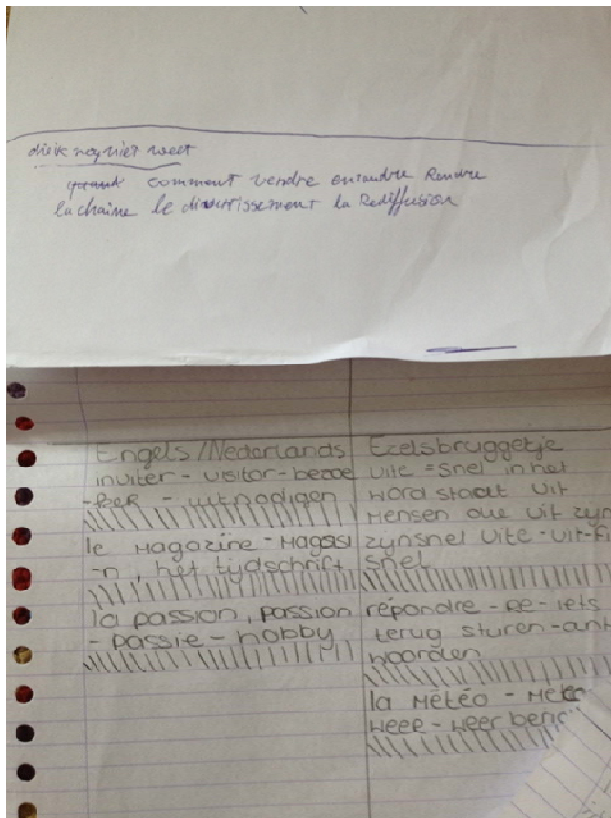 die ik nog niet weet
comment vendre entendre Rendre
la chaine le divertissement la Rediffusion
Engels/Nederlands
inviter - visitor - bezoe
-ker - uitnodigen
le magazine - magasi
-n, het tijdschrift
la passion, passion
- passie - hobby
Ezelsbruggetje
vite = snel in het
word staat vit
mensen die vit zyn
zyn snel vite - vit - fi
snel
répondre - Re - iets
terug sturen - ant
woorden
la météo - mete
weer - weer beric